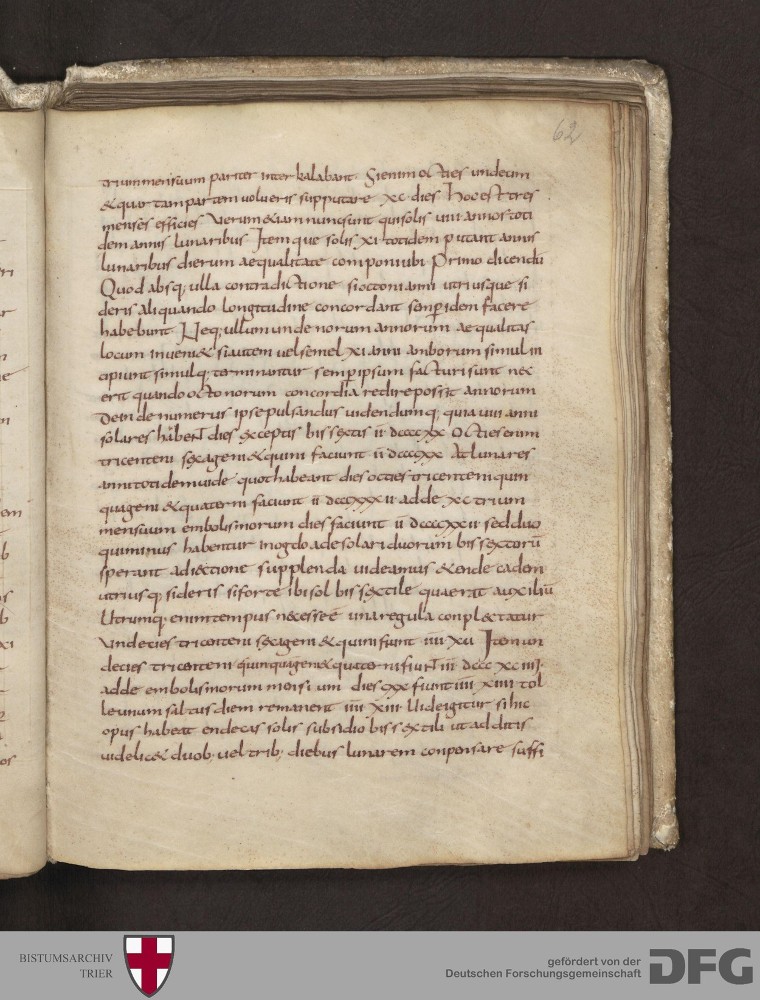 62
trium mensuum pariter inter kalabant. Si enim octies undecim
& quartam partem volueris supputare xc dies hoc est tres
menses efficies Verum &iam nunc sunt qui solis viii annos toti
dem annis lunaribus Itemque solis xi totidem putant annis
lunaribus dierum aequalitate componi ubi Primo dicendū
Quod absq; ulla contradictione si octoni anni utriusque si
deris aliquando longitudine concordant semp idem facere
habebunt Neq; ullum unde norum annorum aequalitas
locum inveni& si autem vel semel xi anni amborum simul in
cipiunt simulq; terminantur semp ipsum facturi sunt nec
erit quando octonorum concordia redire possit annorum
Deinde numerus ipse pulsandus videndumq; quia viii anni
solares habent dies exceptis bissextis ii dccccxx Octies enim
tricenteni sexageni & quini faciunt ii dccccxx At lunares
anni totidem vide quot habeant dies octies tricenteni quin
quageni & quaterni faciunt ii dcccxxxii adde xc trium
mensuum embolismorum dies faciunt ii dccccxxii sed duo
qui minus habentur in ogdoade solari duorum bissextorū
sperant adiectione supplenda videamus & ende cadem
utriusq; sideris si forte ibi sol bissextile quaerat auxiliū
Utrumq; enim tempus necesse ē una regula conplectatur
Undecies tricenteni sexageni & quini fiunt iiii xv Item un
decies tricenteni quinquageni & quaterni fiunt iii dccc xciiii
adde embolismorum mensium dies cxx fiunt iiii xiiii tol
le unum saltus diem remanent iiii xiii Vide igitur si hic
opus habeat endecas solis subsidio bissextili ut additis
videlic& duob; vel trib; diebus lunarem conpensare suffi
BISTUMSARCHIV
TRIER
gefördert von der
Deutschen Forschungsgemeinschaft
DFG